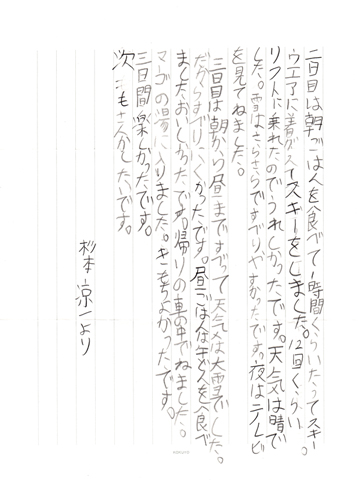 二日目は朝ごはんを食べて1時間くらいたってスキー
ウエアに着がえてスキーをしました。12回くらい
リフトに乗れたのでうれしかったです。天気は晴で
した。雪はさらさらですべりやすかったです。夜はテレビ
を見てねました。
三日目は朝から昼まですべって天気は大雪でした。
だからすべりにくかったです。昼ごはんは牛どんを食べ
ましたおいしかったです。帰りの車の中でねました。
マゴの湯に入りました。きもちよかったです。
三日間楽しかったです。
次もさんかしたいです。
杉本涼一より